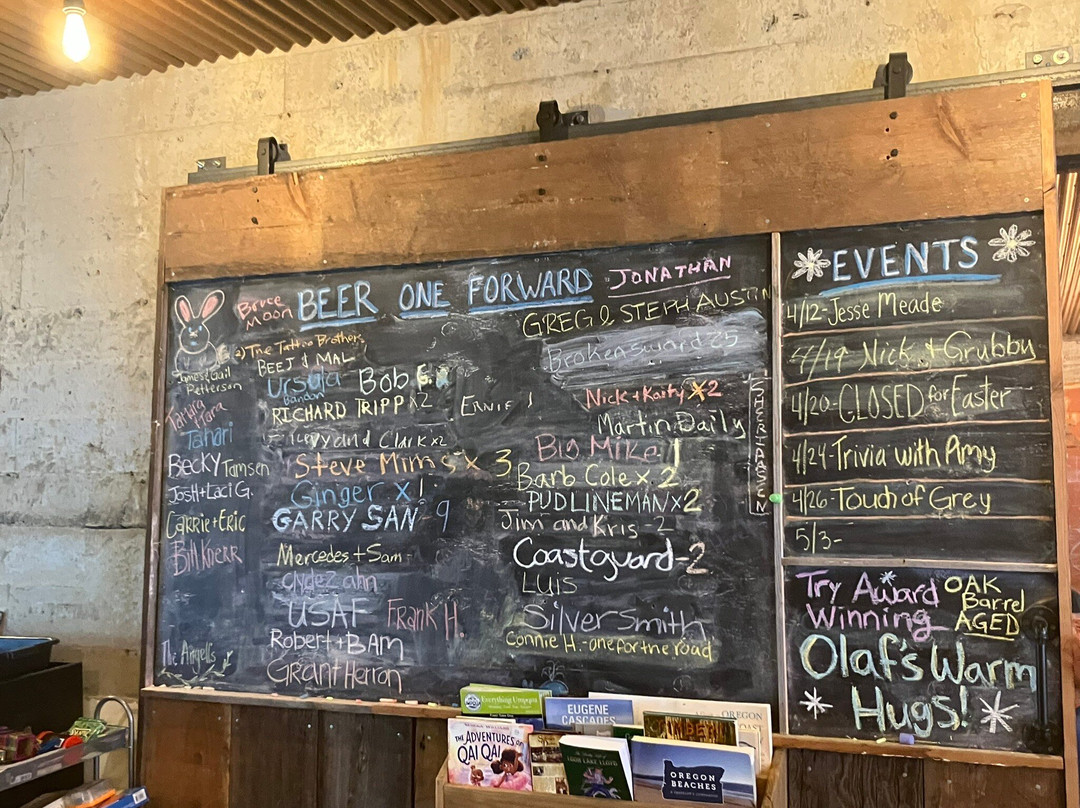 BEER ONE FORWARD
Bruce
Moon
JONATHAN
GREG & STEPH AUSTIN
2) The Tattoo Brothers
BEEJ & MAL
James & Gail
Petterson
Tahari
Becky Tamsen
Josh + Laci G.
Carrie + Eric
Bill Knerr
The Angells
Ursula
Bandon
Bob
RICHARD TRIPP x2
ERNIE 1
and Clark x2
Steve Mims x 3
Ginger x 1
GARRY SAN - 9
Mercedes + Sam
Clyde Zahn
USAF
Frank H.
Robert + BAM
Grant Herron
Brokensword 25
Nick + Karty x2
Martin Daily
Big Mike 1
Barb Cole x 2
PUDLINEMAN x2
Jim and Kris - 2
Coastguard - 2
LUIS
Silversmith
Connie H. - one for the road
EVENTS
4/12 - Jesse Meade
4/19 Nick + Grubby
4/20 - CLOSED for Easter
4/24 - Trivia with Amy
4/26 - Touch of Grey
5/3 -
Try Award
Winning
OAK
Barrel
AGED
Olaf's Warm
Hugs!
EUGENE
CASCADES
OREGON
THE ADVENTURES OF
QAI QAI
OREGON
BEACHES